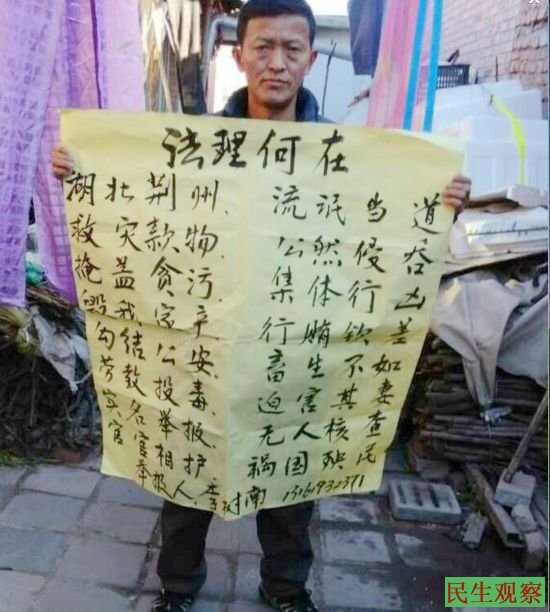 法理何在
湖北荆州、
救灾款物、
掩盖贪污、
毁我家产、
勾结公安、
劳教投毒、
实名举报、
官官相护
流氓当道
公然侵吞
集体行凶
行贿钦差
畜生不如
迫害其妻
无人核查
祸国殃民
举报人、李树南
民生观察